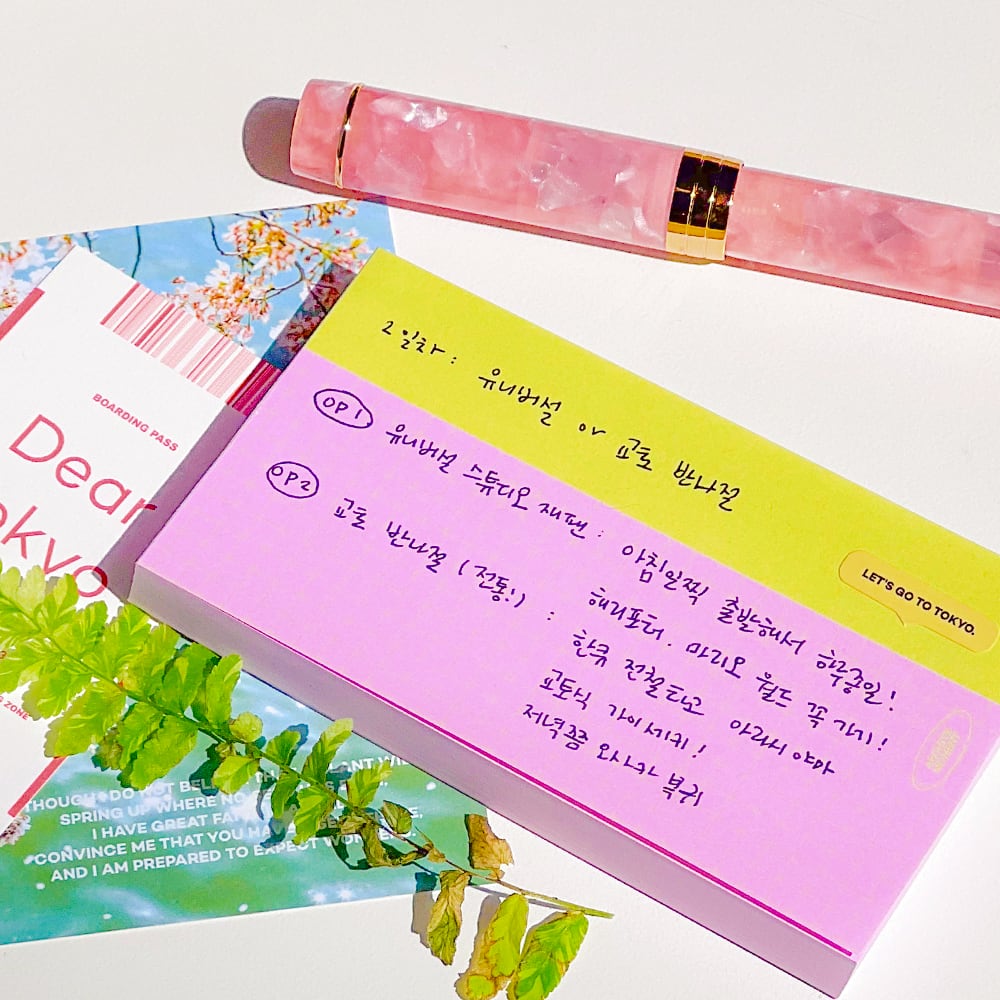 2일차: 유니버설 or 교토 반나절
OP1 유니버설 스튜디오 재팬: 아침일찍 출발해서 하루종일!
해리포터, 마리오 월드 꼭 가기!
OP2 교토 반나절 (전통!) : 한큐 전철타고 아라시야마
교토식 가이세키!
저녁쯤 오사카 복귀
LET'S GO TO TOKYO.
BOARDING PASS
Dear
okyo
G ZONE
THOUGH I DO NOT BEL
SPRING UP WHERE NO
I HAVE GREAT FA
CONVINCE ME THAT YOU HAV
AND I AM PREPARED TO EXPECT WON